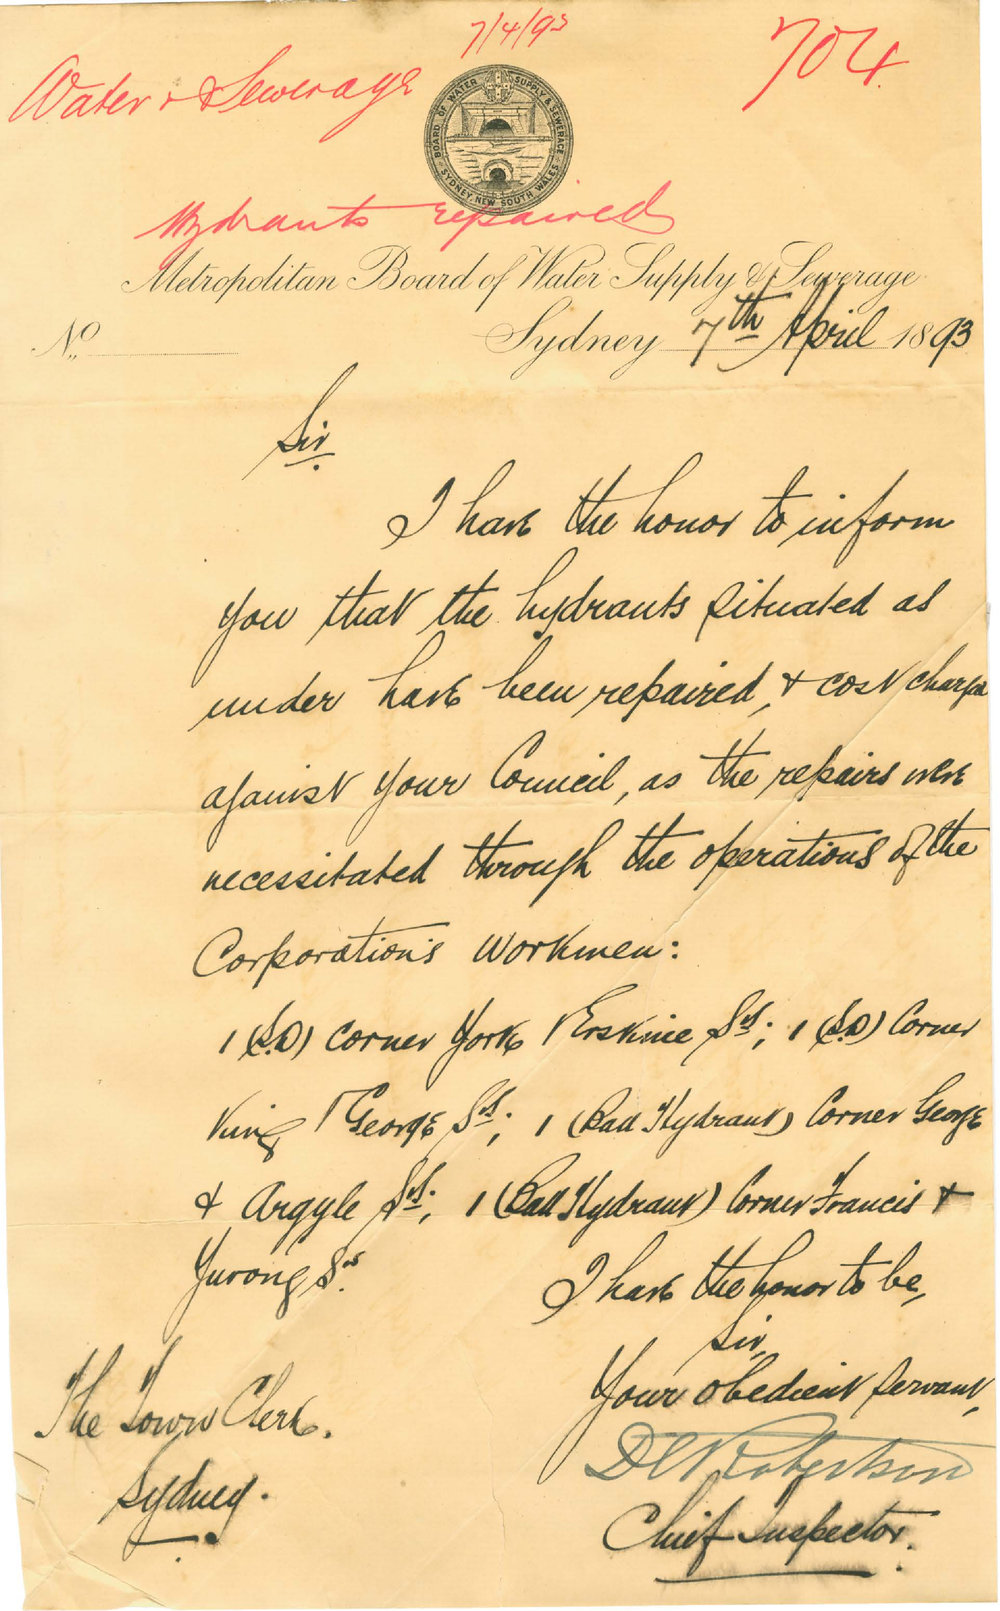 7/4/93
704
Water & Sewerage
BOARD OF WATER SUPPLY & SEWERAGE
SYDNEY, NEW SOUTH WALES
Hydrants repaired
Metropolitan Board of Water Supply & Sewerage
No.
Sydney 7th April 1893
Sir
I have the honor to inform
you that the hydrants situated as
under have been repaired, & cost charged
against your Council, as the repairs were
necessitated through the operations of the
Corporation's workmen:
1 (S.D) corner York & Erskine Sts; 1 (S.D) Corner
King & George Sts; 1 (Ball Hydrant) Corner George
& Argyle Sts; 1 (Ball Hydrant) Corner Francis &
Yurong Sts.
I have the honor to be,
Sir,
Your obedient servant,
Robertson
Chief Inspector.
The Town Clerk.
Sydney.